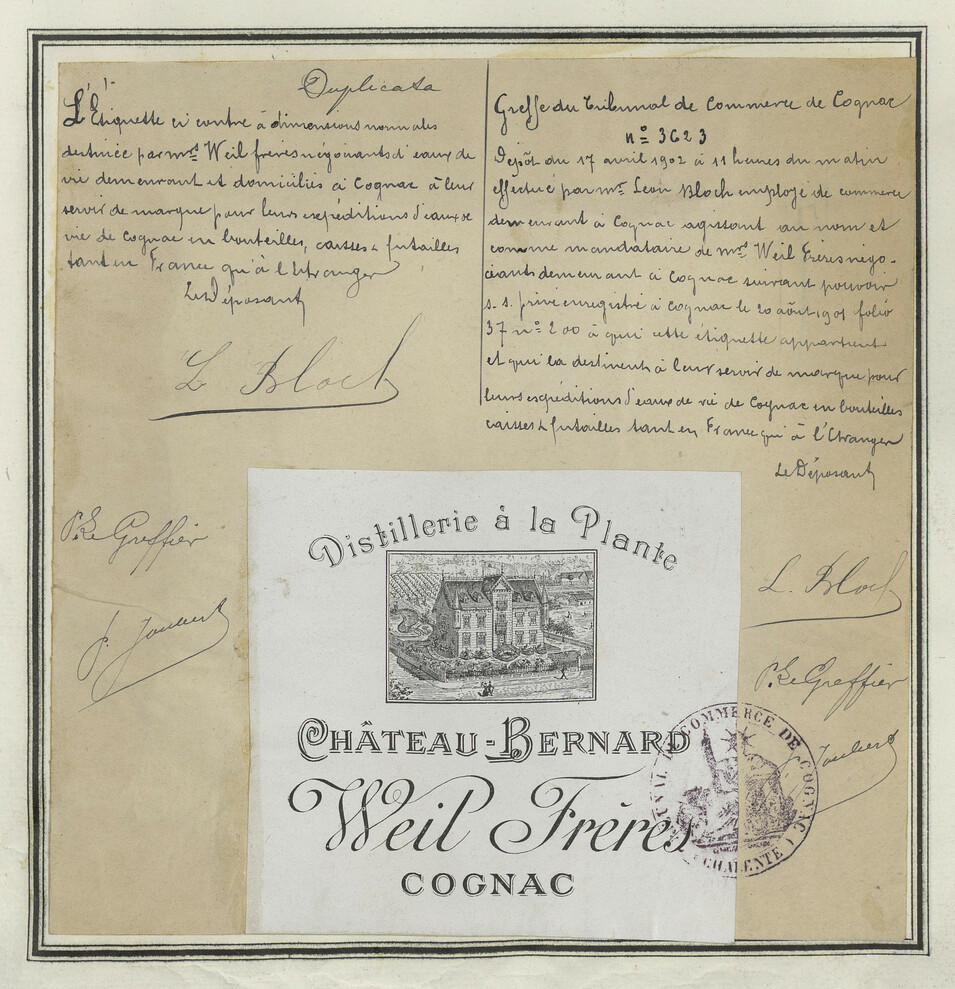 Duplicata
L'Etiquette ci contre à dimensions normales
destinée par mrs Weil frères négociants d'eaux de
vie demeurant et domiciliés à Cognac à leur
servir de marque pour leurs expéditions d'eaux de
vie de Cognac en bouteilles, caisses & futailles
tant en France qu'à l'Etranger
Le Déposant
L. Bloch
Pr Le Greffier
J. Joubert
Greffe du Tribunal de Commerce de Cognac
no 3623
Dépôt du 17 avril 1902 à 11 heures du matin
effectué par mr Léon Bloch employé de commerce
demeurant à Cognac agissant au nom et
comme mandataire de mrs Weil Frères négo-
ciants demeurant à Cognac suivant pouvoir
s. s. privé enregistré à Cognac le 20 août 1901 folio
37 no 200 à qui cette étiquette appartient
et qui la destinent à leur servir de marque pour
leurs expéditions d'eaux de vie de Cognac en bouteilles
caisses & futailles tant en France qu'à l'Etranger
Le Déposant
L. Bloch
Pr Le Greffier
Joubert
Distillerie à la Plante
CHÂTEAU-BERNARD
Weil Frères
COGNAC
TRIBUNAL DE COMMERCE DE COGNAC
(CHARENTE)